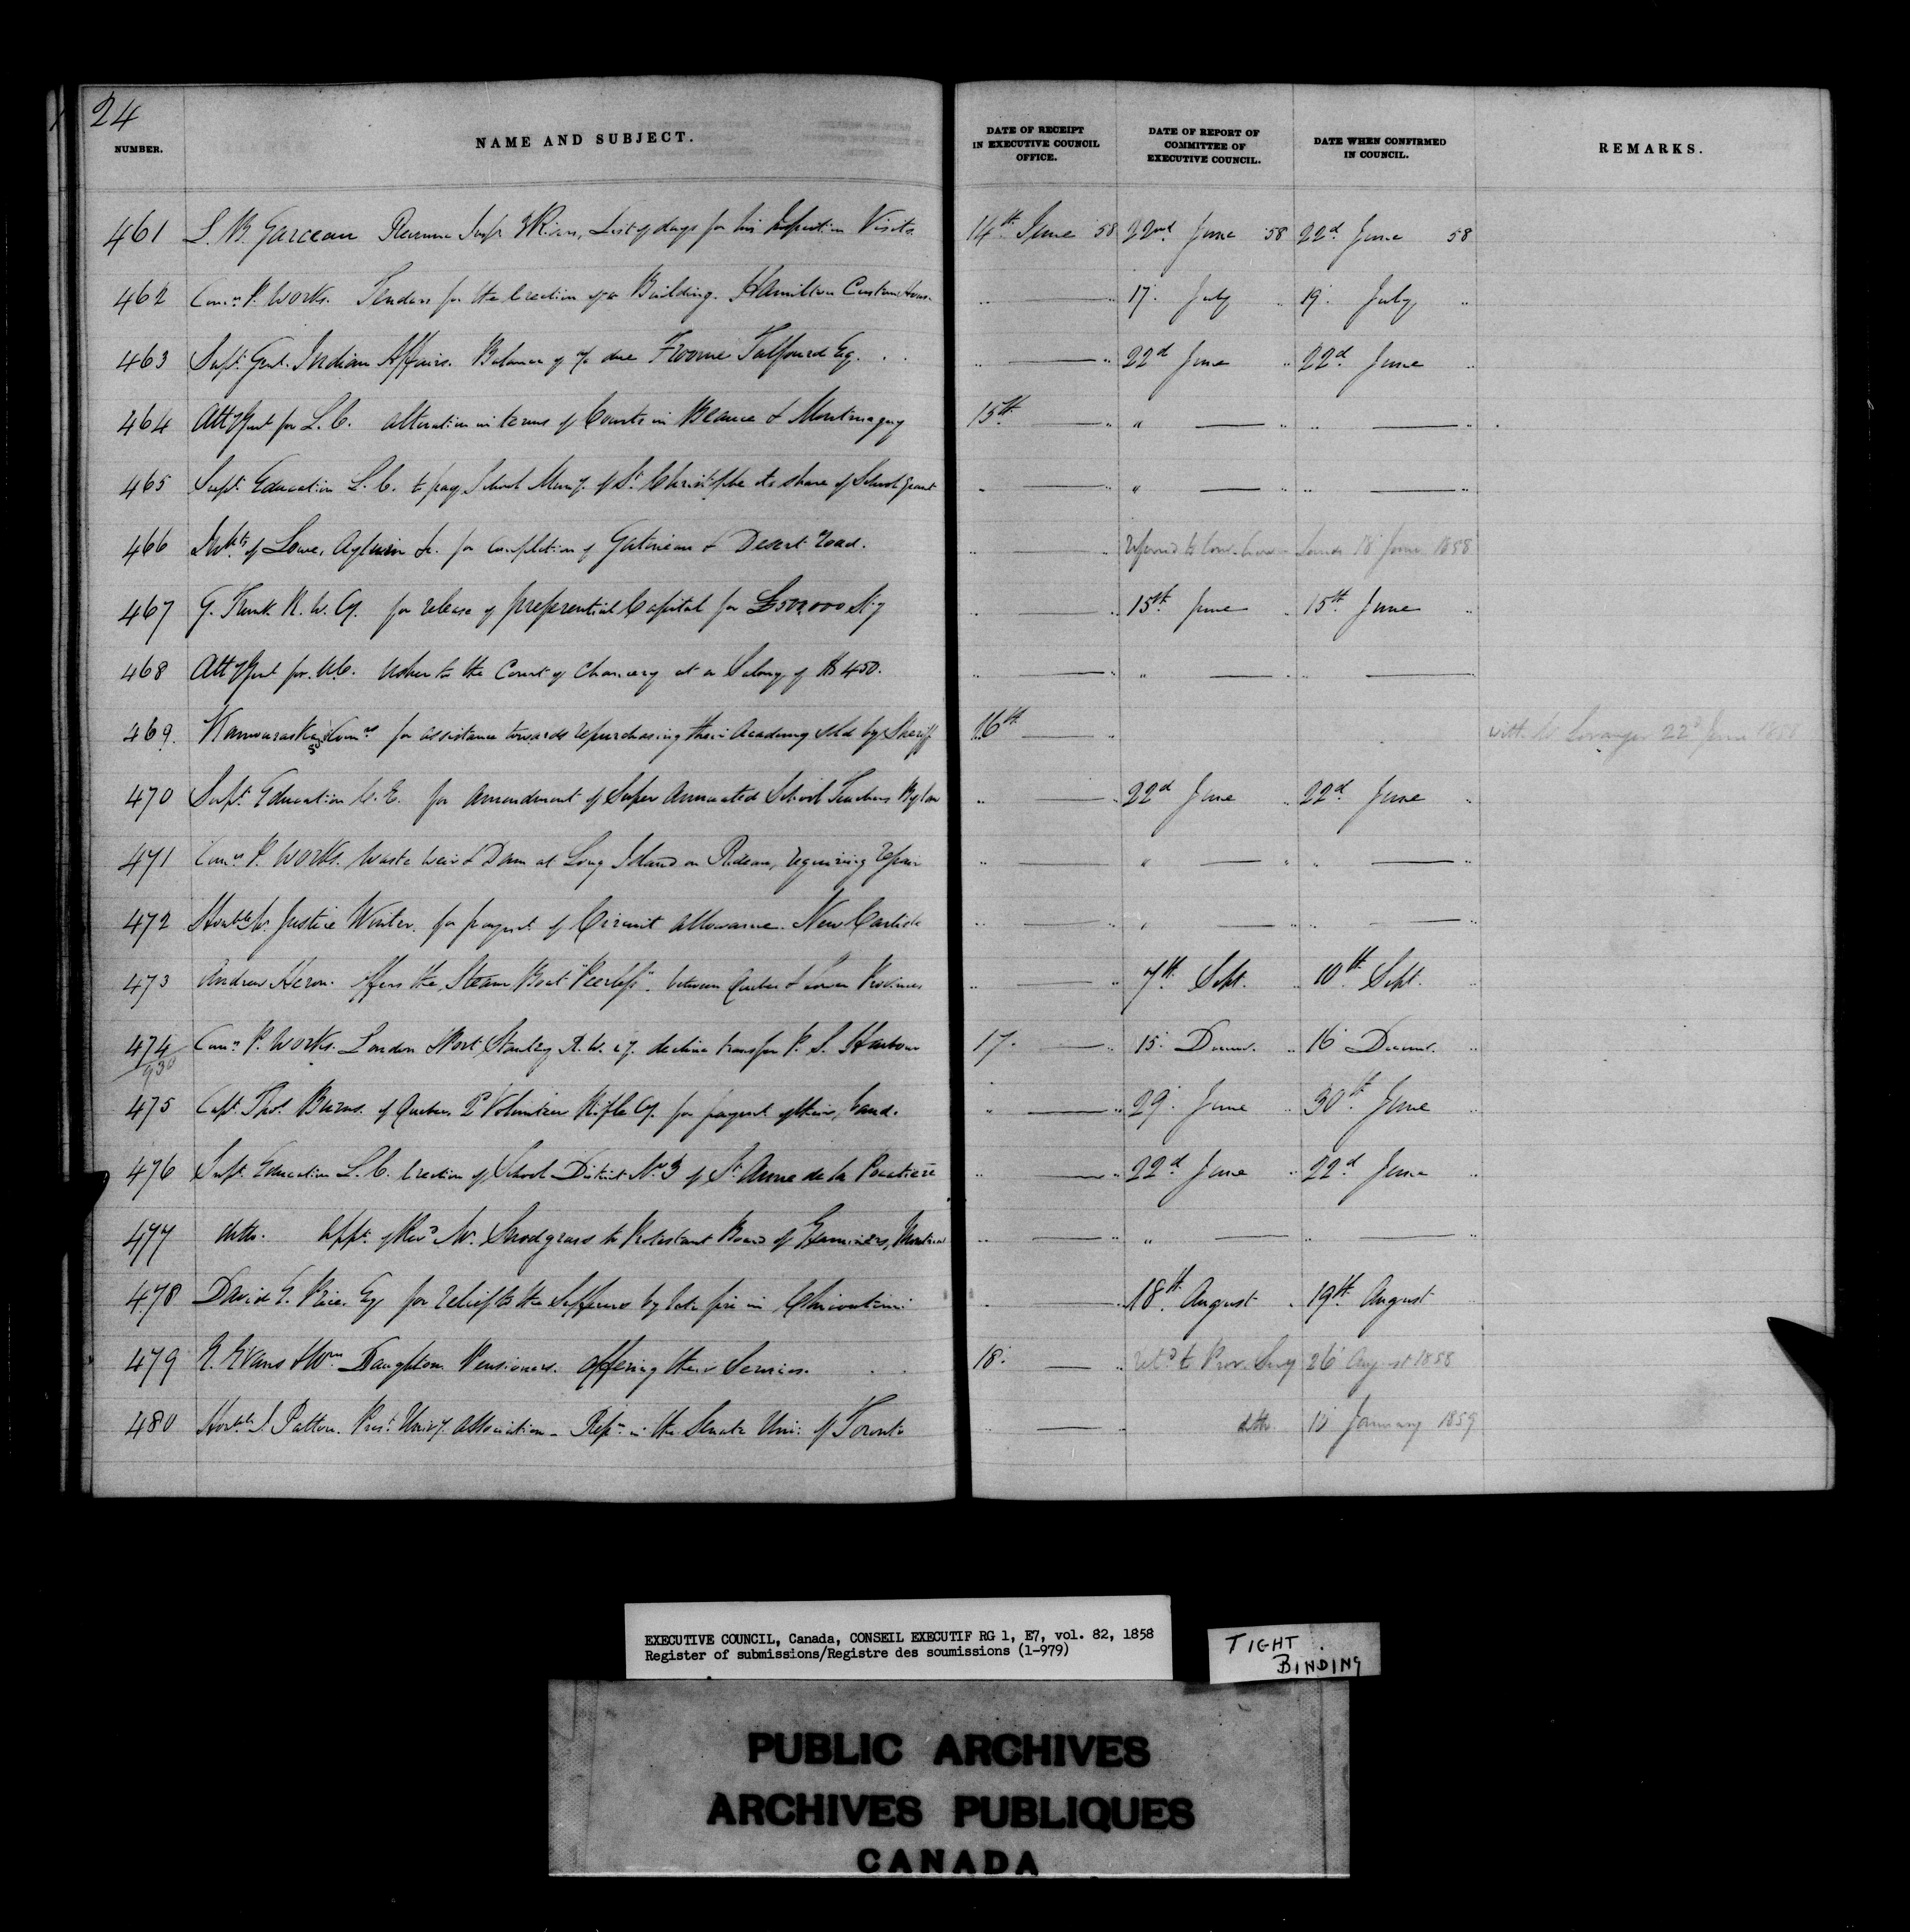 24
NUMBER. NAME AND SUBJECT. DATE OF RECEIPT IN EXECUTIVE COUNCIL OFFICE. DATE OF REPORT OF COMMITTEE OF EXECUTIVE COUNCIL. DATE WHEN CONFIRMED IN COUNCIL. REMARKS.
461 L. B. Garceau Revenue Insp. 3 Rivers, List of days for his Inspection Visits 14th June 58 22nd June 58 22d June 58
462 Comrs P. Works. Tenders for the Erection of a Building. Hamilton Custom House. " — " 17. July " 19. July "
463 Supt. Genl. Indian Affairs. Balance of a/c due Froome Talfourd Esq. . . " — " 22d June " 22d June "
464 Atty Genl for L. C. alteration in terms of Courts in Beauce & Montmagny 15th. — " " — " " — "
465 Supt. Education L. C. to pay School Muny. of St. Christophe its share of School Grant " — " " — " " — "
466 Inhts. of Lowe, Aylwin &c. for completion of Gatineau & Desert Road. " " Referred to Comr. Crown Lands 18 June 1858
467 G. Trunk R. W. Cy. for release of preferential Capital for £500,000 Stg " " 15th June " 15th June "
468 Atty Genl for U.C. Usher to the Court of Chancery at a Salary of $450. " — " " — " " — "
469. Kamouraska Comrs for assistance towards repurchasing their Academy sold by Sheriff 16th — " with Mr. Loranger 22d June 1858
470 Supt. Education C. E. for amendment of Super Annuated School Teachers Bylaw " — " 22d June " 22d June "
471 Comrs P. Works. Waste Weir & Dam at Long Island on Rideau, requiring repair " — " " — " " — "
472 Honble Mr. Justice Winter. for paymt. of Circuit allowance. New Carlisle " — " " — " " — "
473 Andrew Heron. offers the Steam Boat "Peerless". between Quebec & Lower Provinces " — " 7th. Sept. " 10th Sept. "
474/930 Comrs P. Works. London & Port Stanley R. W. Cy. decline transfer P. S. Harbour 17. — " 15. Decemr. " 16 Decemr. "
475 Capt. Thos. Burns. of Quebec 2d Volunteer Rifle Cy. for paymt of their band. " — " 29. June " 30th June "
476 Supt. Education L. C. Erection of School District No. 3 of St. Anne de la Pocatiere " — " 22d June " 22d June "
477 ditto. appt. of Revd. W. Snodgrass to Protestant Board of Examiners, Montreal " — " " — " " — "
478 David E. Price. Esq for relief to the Sufferers by late fire in Chicoutimi " — " 18th August " 19th August "
479 E. Evans & Wm Daughton Pensioners. offering their Services. . . 18. — " Refd to Prov. Secy 26 August 1858
480 Honble J. Patton. Prest. Univy. Association — Repn in the Senate Uni: of Toronto " — " ditto 10 January 1859
EXECUTIVE COUNCIL, Canada, CONSEIL EXECUTIF RG 1, E7, vol. 82, 1858
Register of submissions/Registre des soumissions (1-979)
TIGHT
BINDING
PUBLIC ARCHIVES
ARCHIVES PUBLIQUES
CANADA